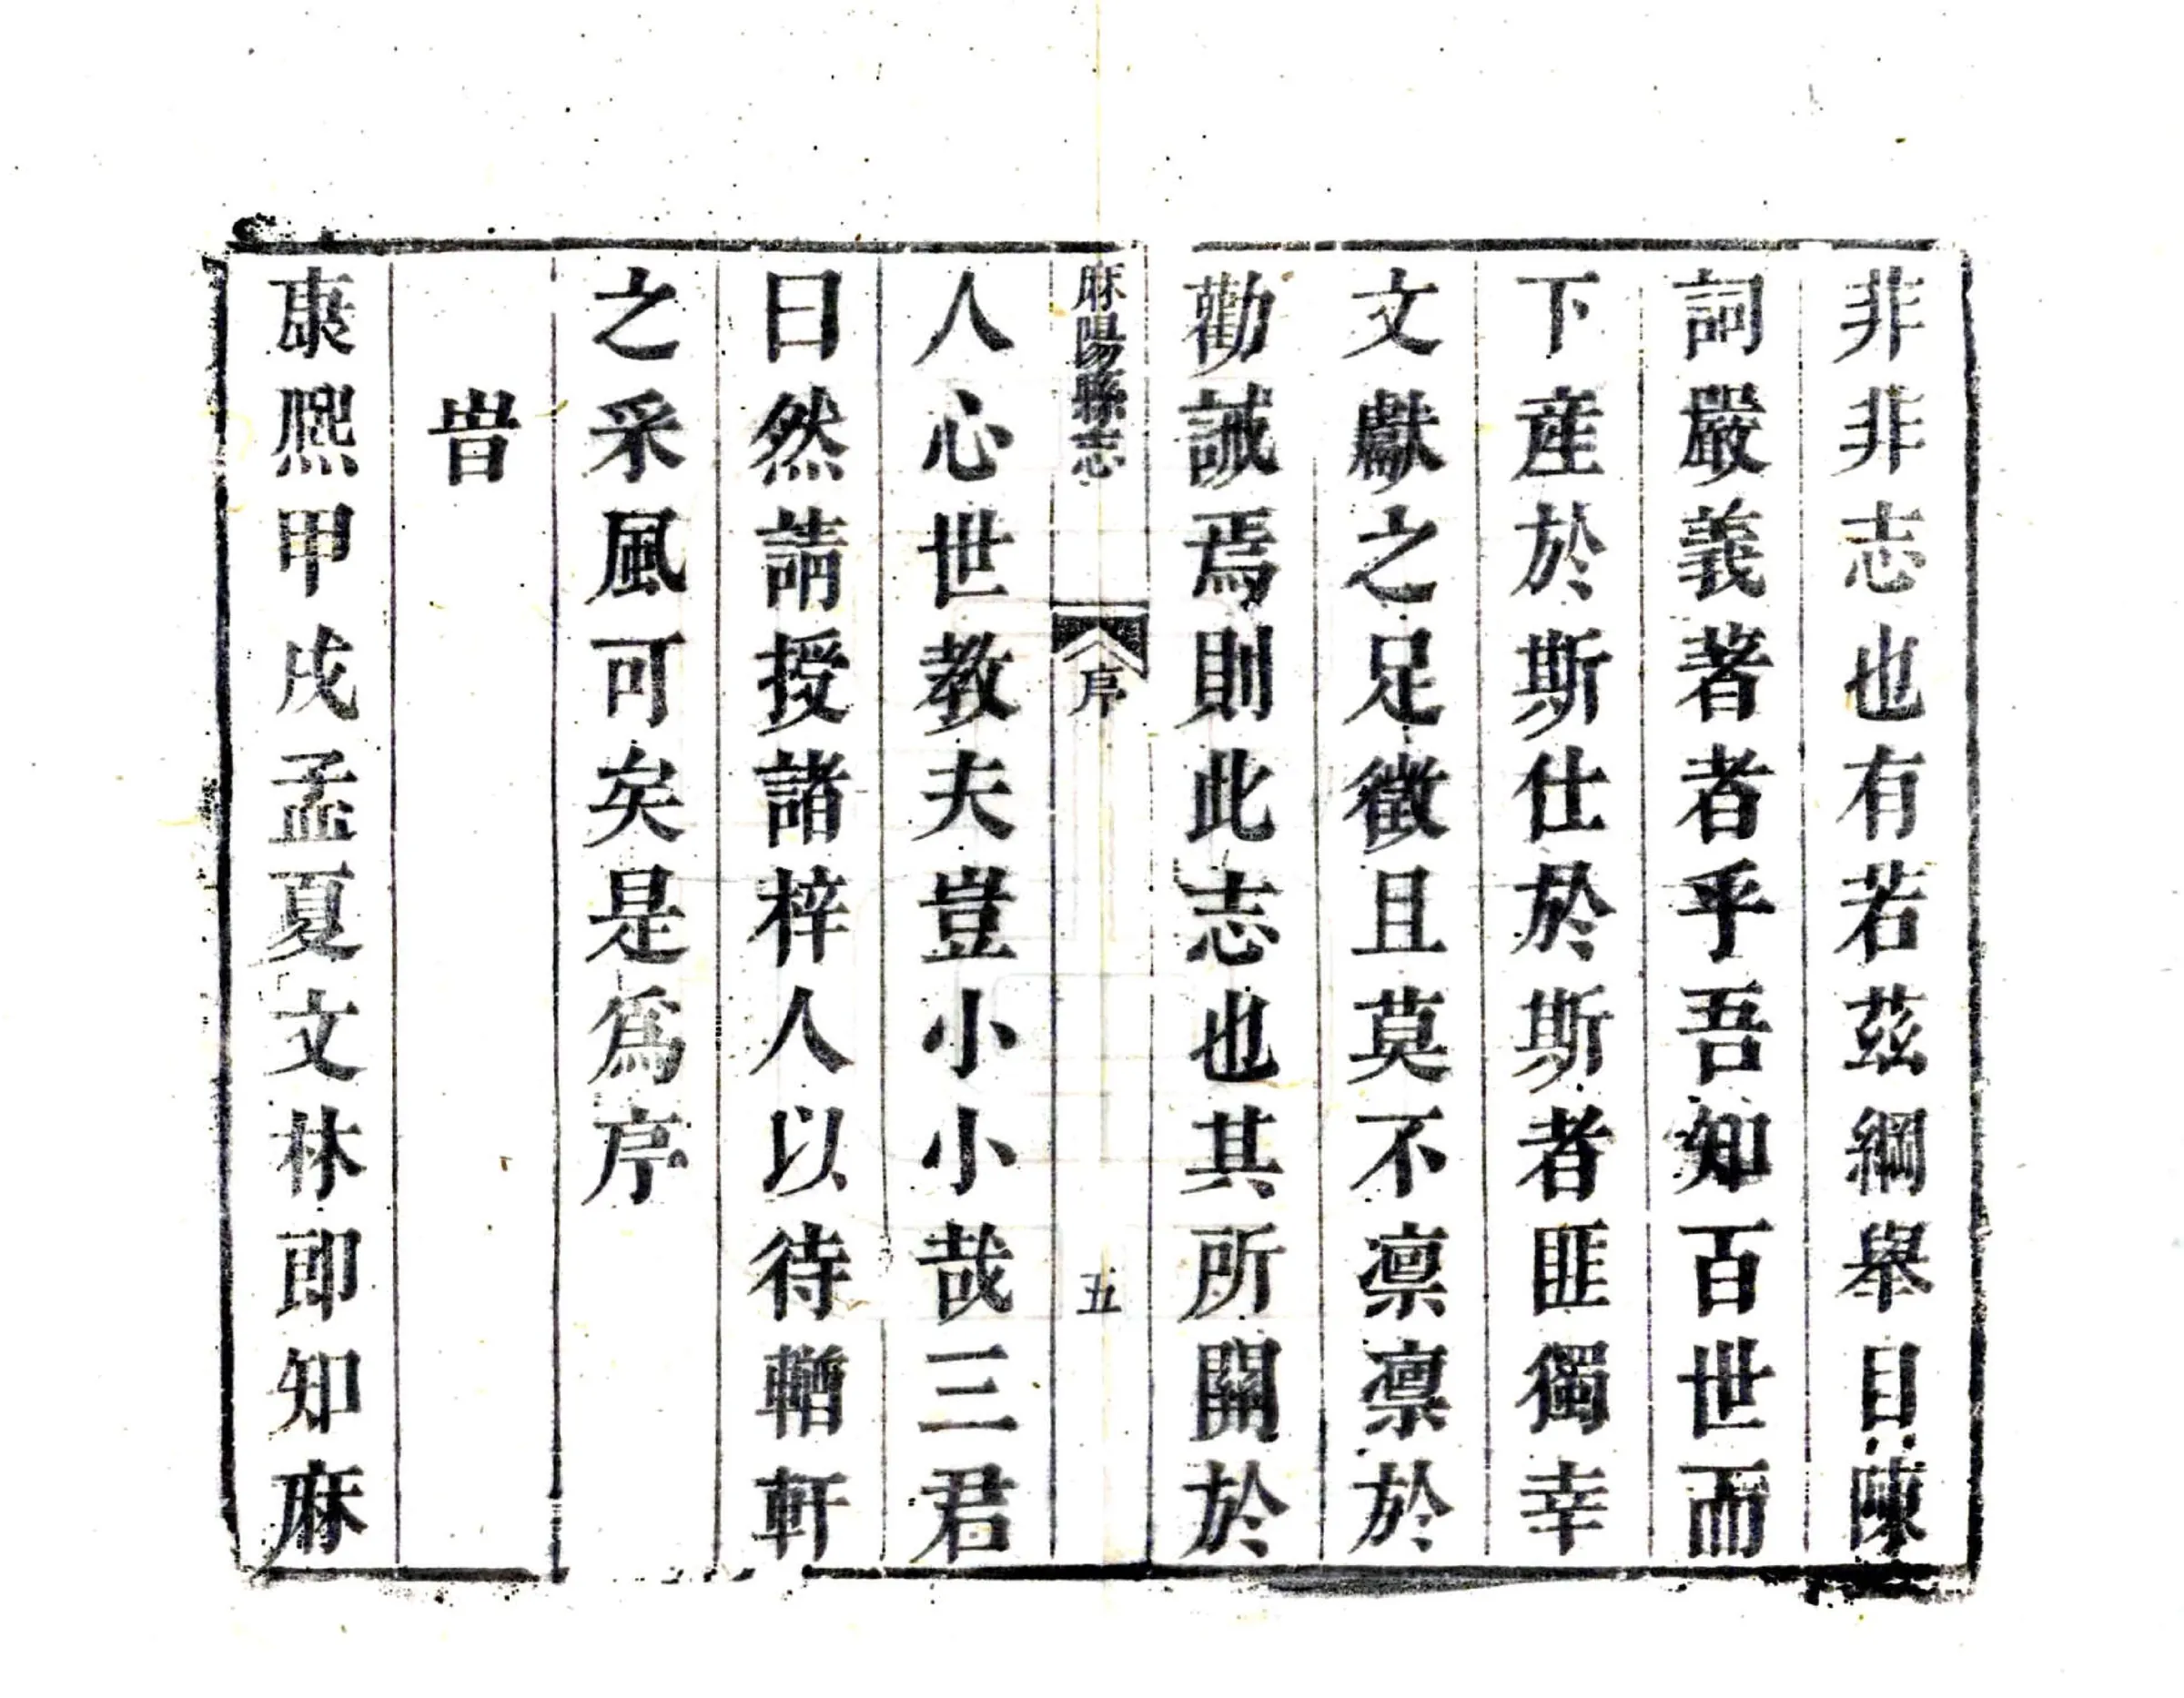 非非志也有若茲綱舉目陳
詞嚴義著者乎吾知百世而
下産於斯仕於斯者匪獨幸
文獻之足徵且莫不凛凛於
勸誡焉則此志也其所關於
麻陽縣志
序
五
人心世教夫豈小小哉三君
曰然請授諸梓人以待輶軒
之采風可矣是爲序
旹
康熙甲戌孟夏文林郎知麻